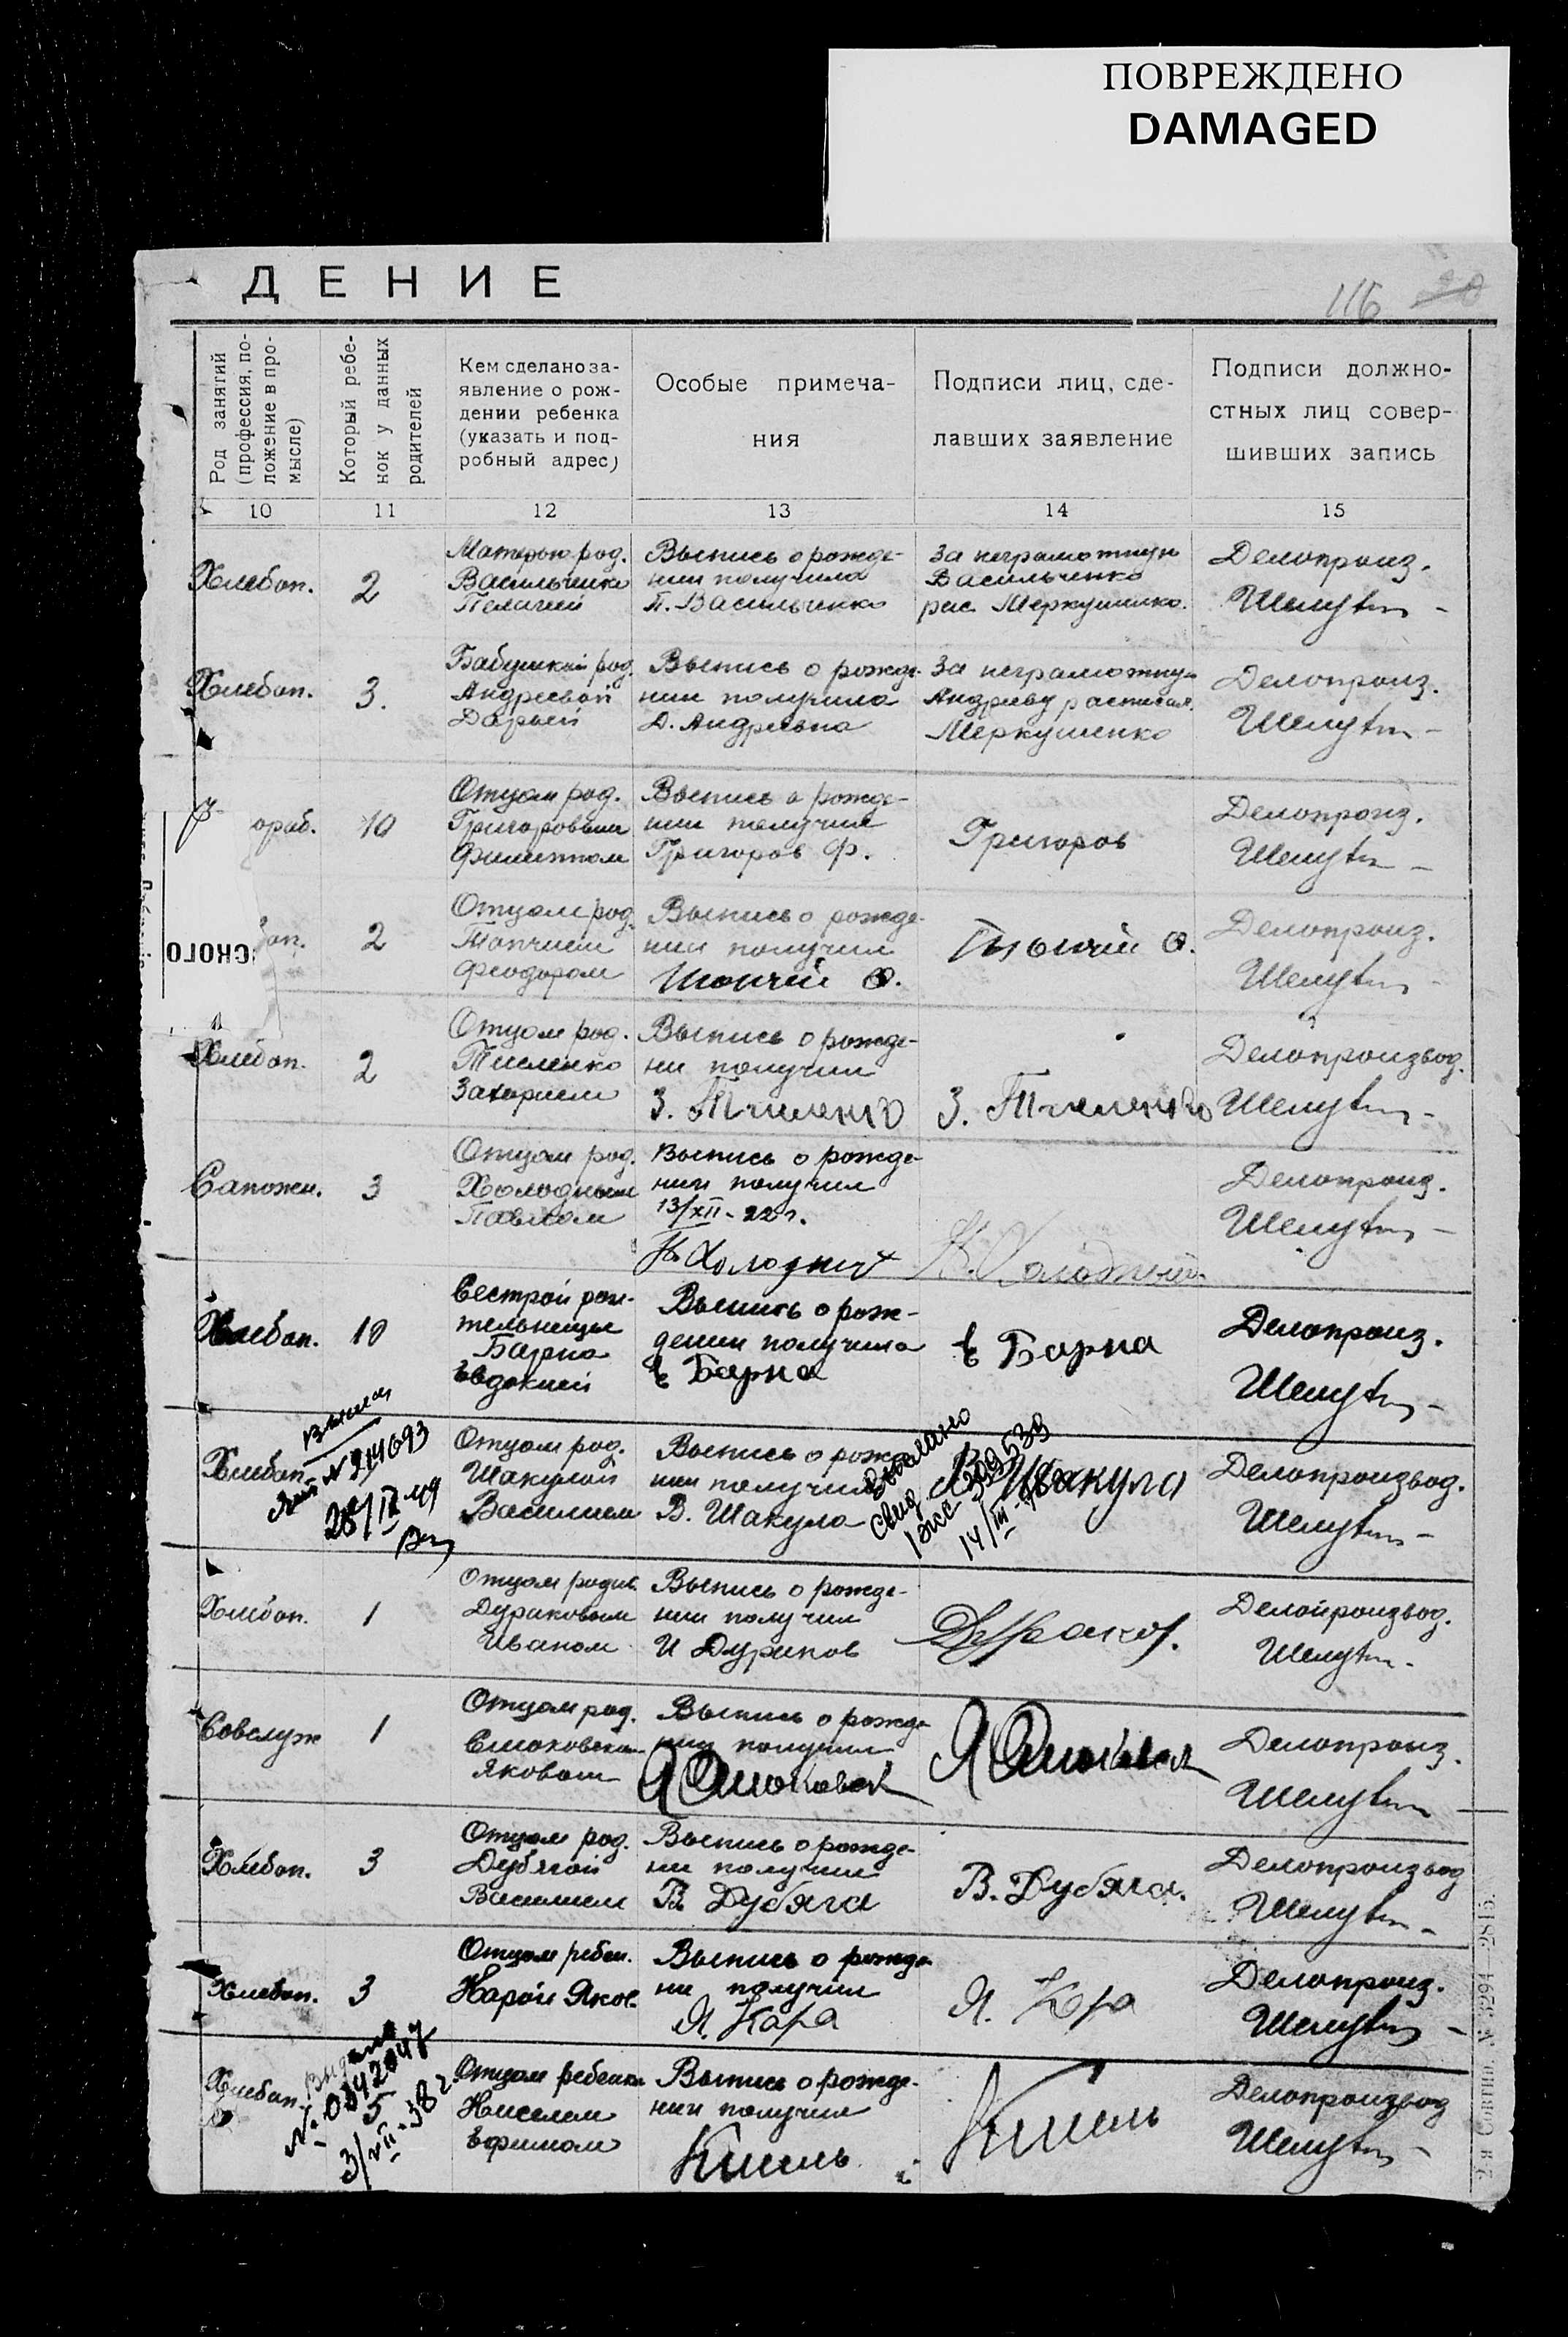 ПОВРЕЖДЕНО
DAMAGED
ДЕНИЕ
116 20
Род занятий
(профессия, по-
ложение в про-
мысле)
Который ребе-
нок у данных
родителей
Кем сделано за-
явление о рож-
дении ребенка
(указать и под-
робный адрес)
Особые примеча-
ния
Подписи лиц, сде-
лавших заявление
Подписи должно-
стных лиц совер-
шивших запись
10 11 12 13 14 15
Хлебоп.
2
Матерью род.
Васильченко
Пелагией
Выпись о рожде-
нии получила
П. Васильченко
За неграмотную
Васильченко
рас. Меркушенко.
Делопроиз.
Шелут
Хлебоп.
3.
Бабушкой род.
Андреевой
Дарьей
Выпись о рожде-
нии получила
Д. Андреевна
За неграмотну
Андрееву расписал.
Меркушенко
Делопроиз.
Шелут
ораб.
10
Отцом род.
Григоровым
Филиппом
Выпись о рожде-
нии получил
Григоров Ф.
Григоров
Делопроиз.
Шелут
оп.
СКОГО
2
Отцом род.
Топчием
Феодором
Выпись о рожде-
нии получил
Топчий Ѳ.
Топчий Ѳ.
Делопроиз.
Шелут
Хлебоп.
2
Отцом род.
Тисленко
Захарием
Выпись о рожде-
ни получил
З. Тисленко
З. Тисленко
Делопроизвод.
Шелут
Сапожн.
3
Отцом род.
Холодным
Павлом
Выпись о рожде-
нии получил
13/XII-22 г.
П. Холодный
П. Холодный
Делопроиз.
Шелут
Хлебоп.
10
Сестрой роди-
тельницы
Барна
Евдокией
Выпись о рож-
дении получила
Е Барна
Е Барна
Делопроиз.
Шелут
Хлебоп.
№ 214693
28/IV-49
Отцом род.
Шакулой
Василием
Выпись о рожде
нии получил
В. Шакула
Выслано
свид.
14/III
В. Шакула
Делопроизвод.
Шелут
Хлебоп.
1
Отцом родив.
Дураковым
Иваном
Выпись о рожде-
нии получил
И Дураков
Дураков.
Делопроизвод.
Шелут
Совслуж
1
Отцом род.
Яковом
Выпись о рожде
нии получил
Делопроиз.
Шелут
Хлебоп.
3
Отцом род.
Дубягой
Василием
Выпись о рожде-
ни получил
В. Дубяга
В. Дубяга.
Делопроизвод
Шелут
Хлебоп.
3
Отцом ребен.
Карой Яков.
Выпись о рожде
ни получил
Я. Кара
Я. Кара
Делопроиз.
Шелут
Хлебоп.
Выдано
№ 0342047
5
3/XII-38 г.
Отцом ребенка
Киселем
Ефимом
Выпись о рожде-
нии получил
Кисель
Кисель
Делопроизвод
Шелут
2-я Совтип. № 3294—2815.